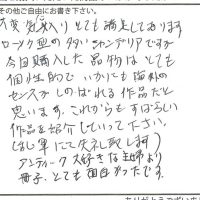 その他ご自由にお書き下さい。
大変気に入りとても満足しております
ローソク型の多いシャンデリアですが
今回購入した品物はとても
個性的で いかにも海外の
センスがしのばれる作品だと
思います。これからもすばらしい
作品を紹介していって下さい。
(乱筆にて失礼致します)
アンティーク大好きな主婦より
冊子、とても面白かったです。
ありがとうございま